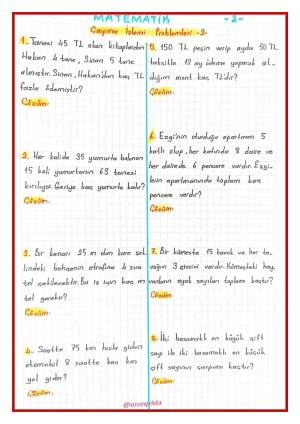 MATEMATİK -2-
Çarpma İşlemi Problemleri -2-
1. Tanesi 45 TL olan kitaplardan
Hakan 4 tane, Sinem 5 tane
almıştır. Sinem, Hakan'dan kaç TL
fazla ödemiştir?
Çözüm:
2. Her kolide 35 yumurta bulunan
15 koli yumurtanın 63 tanesi
kırılıyor. Geriye kaç yumurta kalır?
Çözüm:
3. Bir kenarı 25 m olan kare şek-
lindeki bahçenin etrafına 4 sıra
tel çekilecektir. Bu iş için kaç m
tel gerekir?
Çözüm:
4. Saatte 75 km hızla giden
otomobil 8 saatte kaç km
yol gider?
Çözüm:
5. 150 TL peşin verip ayda 50 TL
taksitle 12 ay ödeme yaparak al-
dığım mont kaç TL'dir?
Çözüm:
6. Ezgi'nin oturduğu apartman 5
katlı olup, her katında 8 daire ve
her dairede 6 pencere vardır. Ezgi-
nin apartmanında toplam kaç
pencere vardır?
Çözüm:
7. Bir kümeste 15 tavuk ve her ta-
vuğun 3 civcivi vardır. Kümesteki hay-
vanların ayak sayıları toplamı kaçtır?
Çözüm:
8. İki basamaklı en büyük çift
sayı ile iki basamaklı en küçük
çift sayının çarpımı kaçtır?
Çözüm: